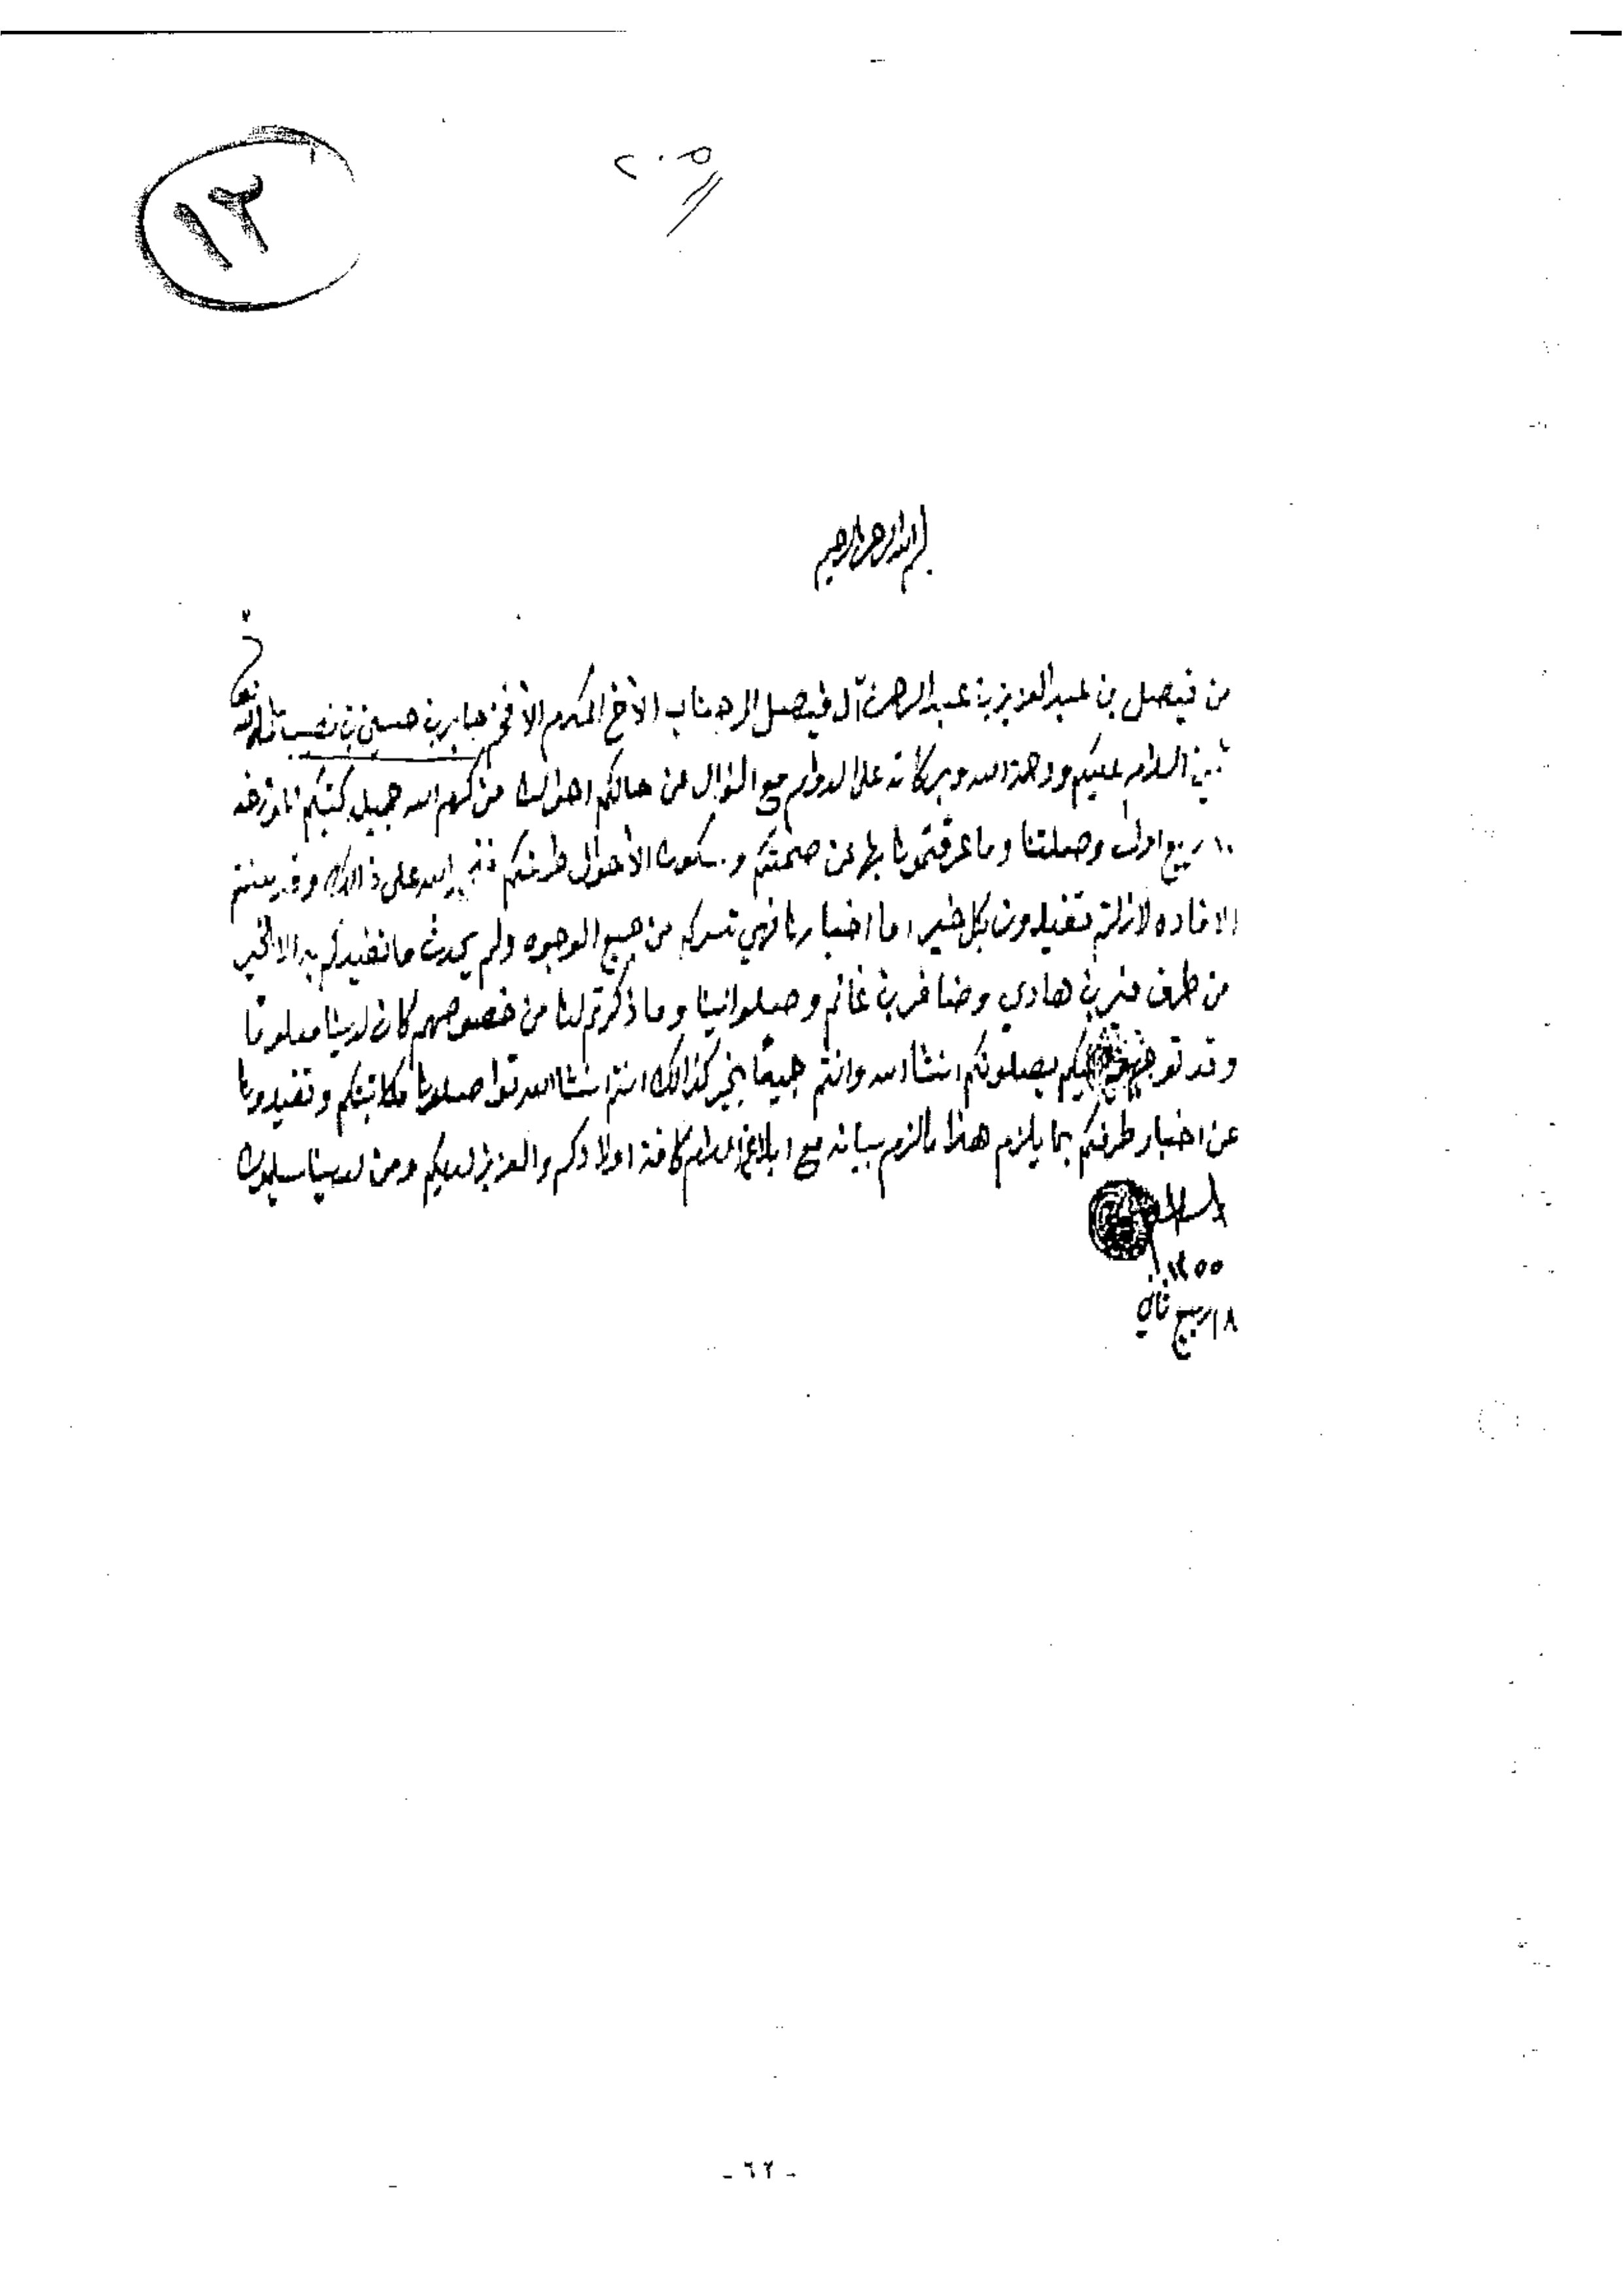 ١٢
بسم الله الرحمن الرحيم
من فيصل بن عبدالعزيز بن عبدالرحمن آل فيصل الى جناب الأخ المكرم الأفخم جابر بن حسين بن نصيب سلمه الله تعالى
السلام عليكم ورحمة الله وبركاته على الدوام مع السؤال عن حالكم احوالنا من كرم الله جميله كتبكم المؤرخه
١٠ ربيع اول وصلتنا وما عرفتمونا بها عن صحتكم وسكون الأحوال طرفكم فنحمد الله على ذالك وقد بينتم
الافاده لازلتم تفيدون بكل خير اما اخبارنا فهي تسركم من جميع الوجوه ولم يحدث ما نفيدكم به الا الخير
من طرف بن هادي وضافر بن غانم وصلوا الينا وما ذكرتم لنا من خصوصهم كان لدينا معلومًا
وقد توجهوا اليكم يصلونكم انشاالله وانتم جميعًا بخير كذالك انتم انشاالله تواصلونا مكاتبتكم وتفيدونا
عن اخبار طرفكم بما يلزم هذا مالزم بيانه مع ابلاغ السلام كافة اولادكم والعزيز لديكم ومن لدينا يسلمون
والسلام
١٣٥٥
١٨ ربيع ثاني
- ٦٢ -